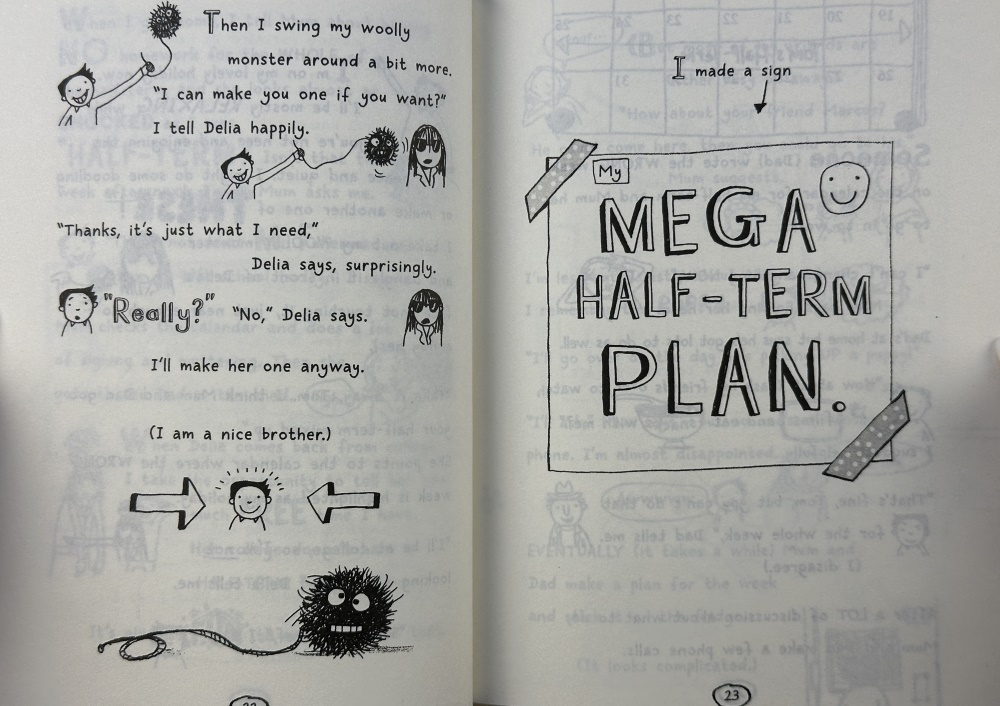 Then I swing my woolly
monster around a bit more.
"I can make you one if you want?"
I tell Delia happily.
"Thanks, it's just what I need,"
Delia says, surprisingly.
"Really?" "No," Delia says.
I'll make her one anyway.
(I am a nice brother.)
I made a sign
My
MEGA
HALF-TERM
PLAN.
23